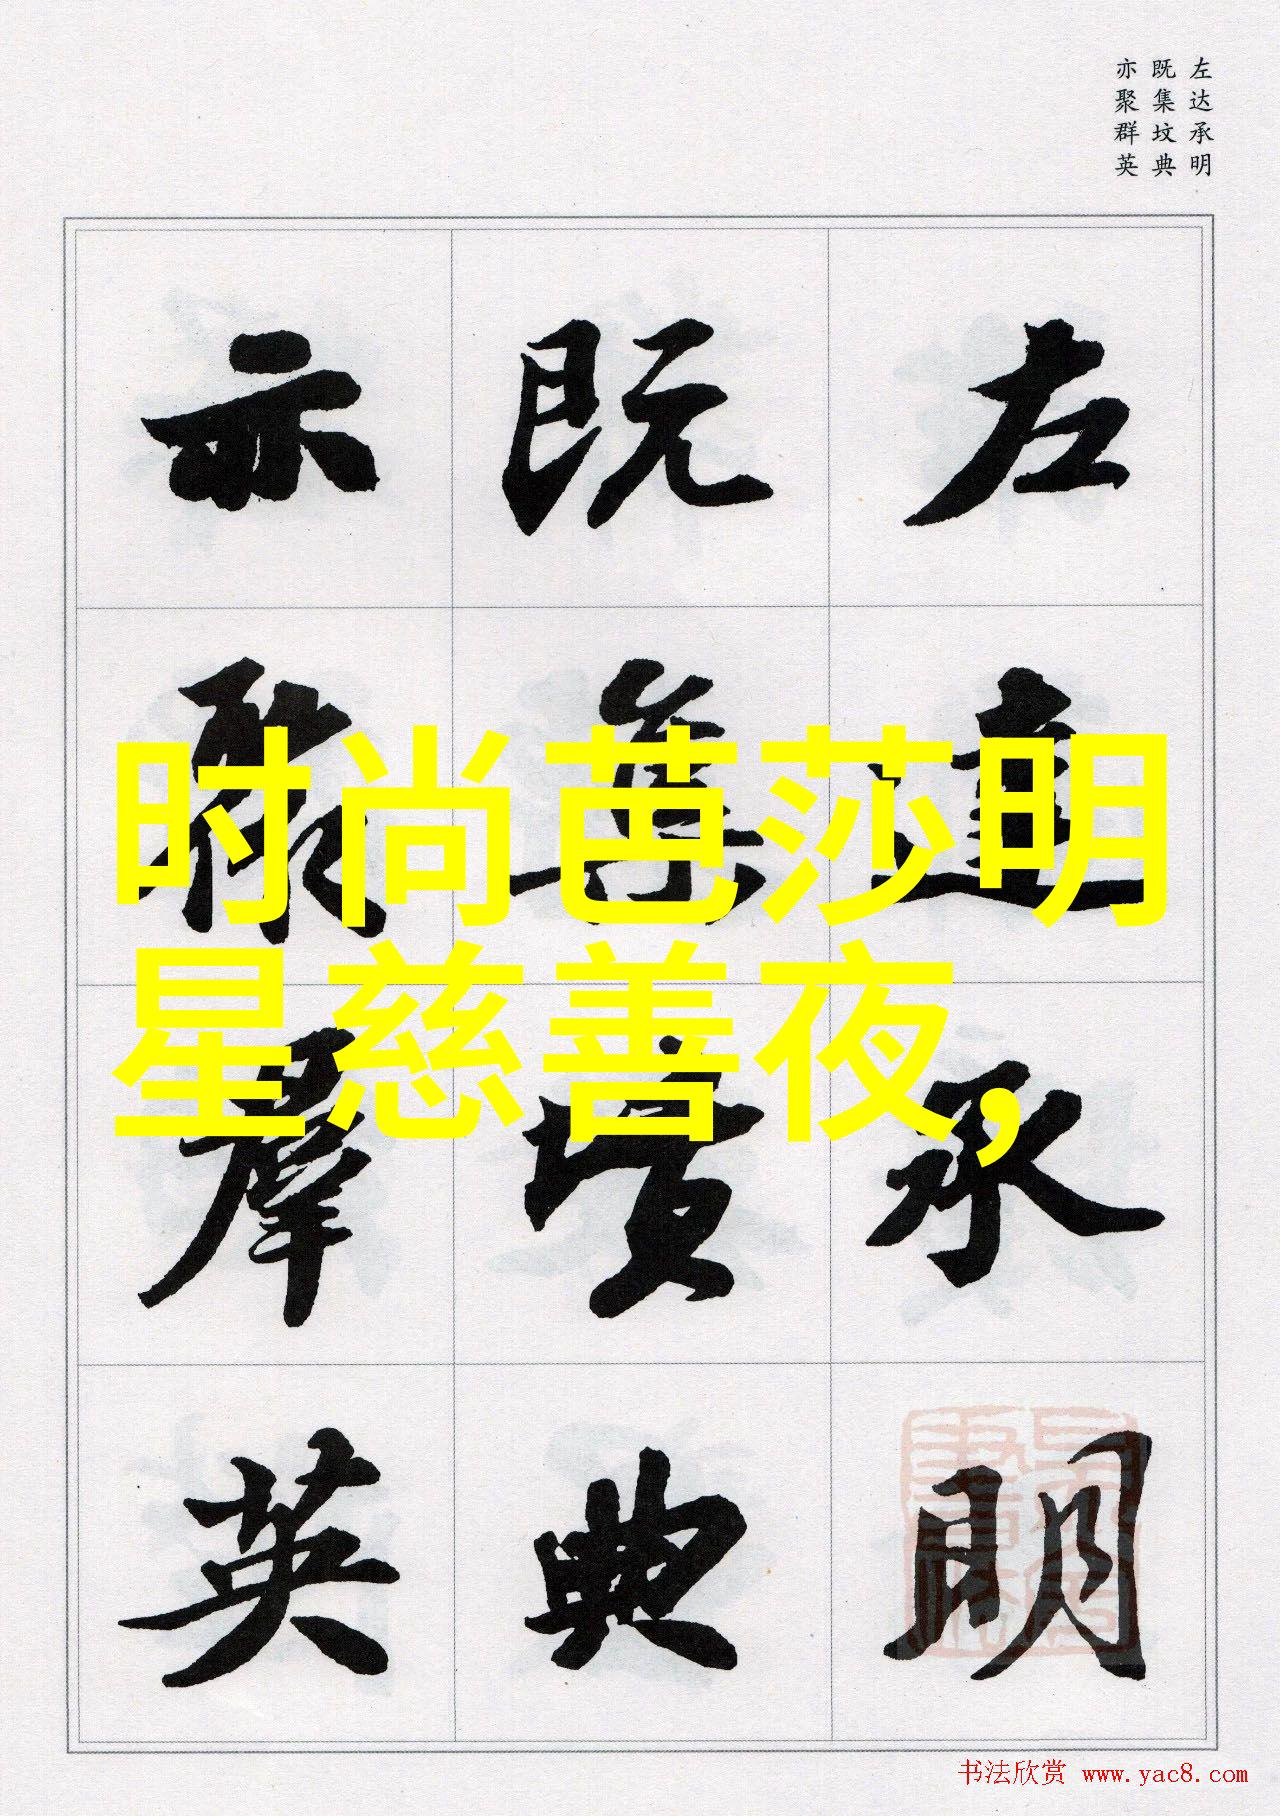 左达承明
既集坟典
亦聚群英
左達承明
既集墳典
亦聚羣英
时尚芭莎明
星慈善夜,
书法欣赏 www.yac8.com